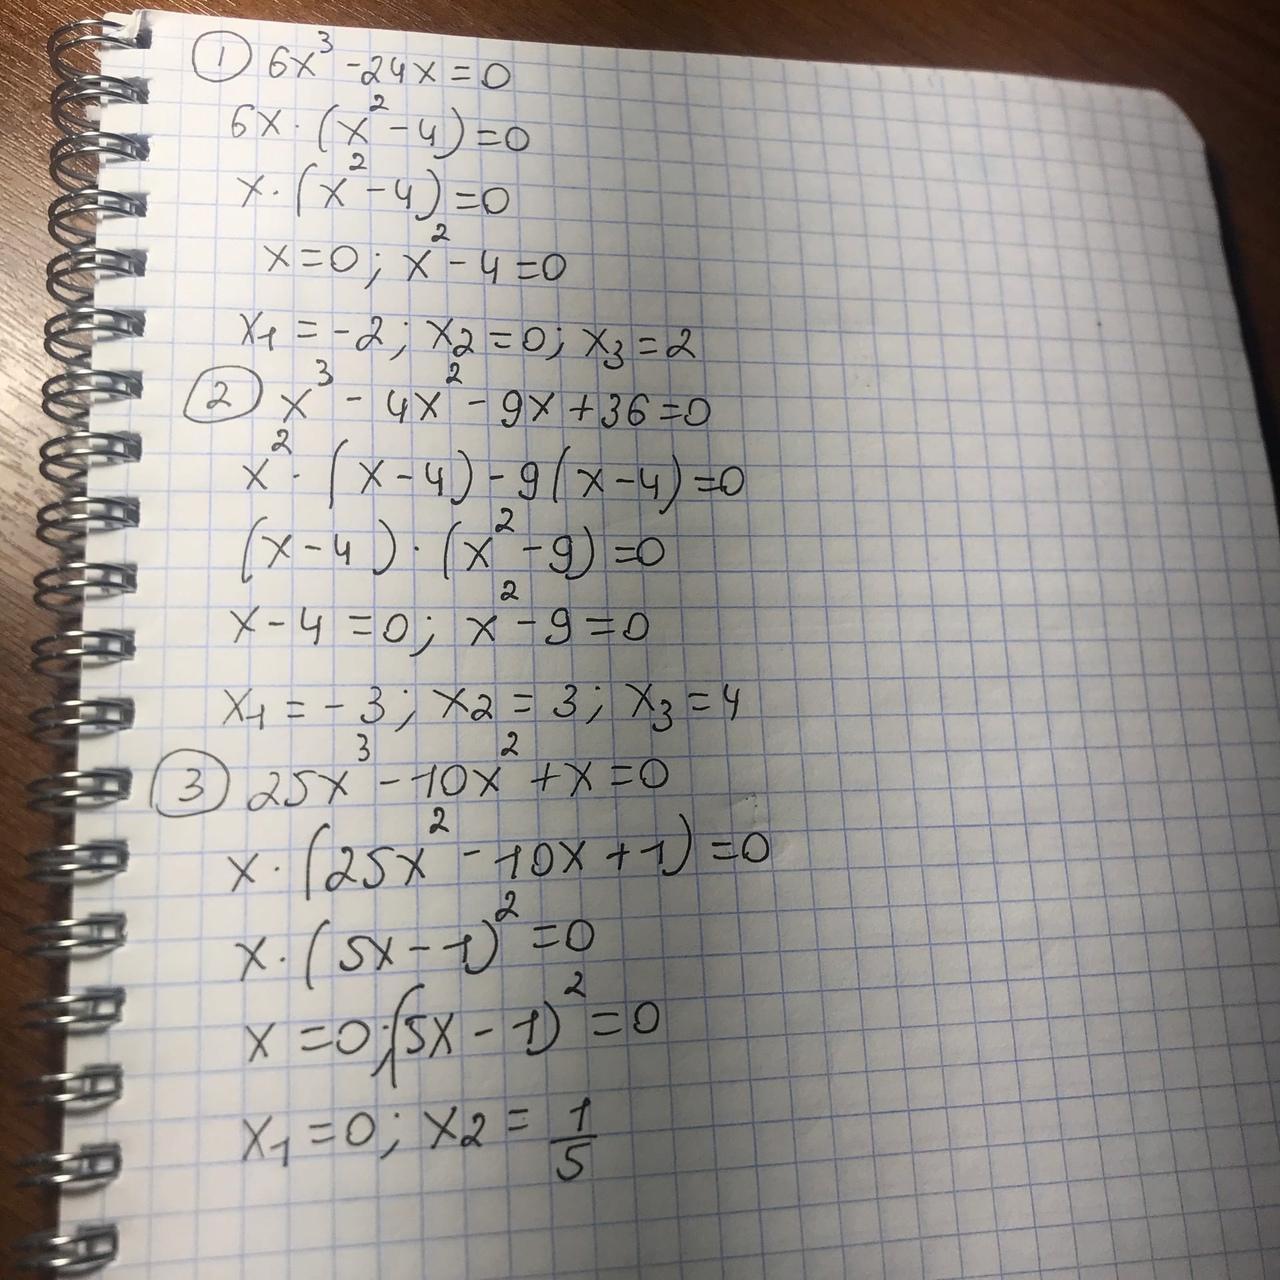 ① 6x³ - 24x = 0
6x · (x² - 4) = 0
x · (x² - 4) = 0
x = 0; x² - 4 = 0
x₁ = -2; x₂ = 0; x₃ = 2
② x³ - 4x² - 9x + 36 = 0
x² · (x - 4) - 9(x - 4) = 0
(x - 4) · (x² - 9) = 0
x - 4 = 0; x² - 9 = 0
x₁ = -3; x₂ = 3; x₃ = 4
③ 25x³ - 10x² + x = 0
x · (25x² - 10x + 1) = 0
x · (5x - 1)² = 0
x = 0; (5x - 1)² = 0
x₁ = 0; x₂ = 1/5